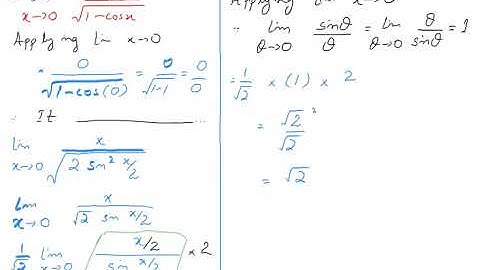 x→0 √1-cosx
Applying Lim x→0
= 0/√1-cos(0) = 0/√1-1 = 0/0
∴ It ..............
Lim x→0 x/√2 sin² x/2
Lim x→0 x/√2 sin x/2
1/√2 Lim x→0 x/2 / sin x/2 × 2
Applying Lim x→0
∴ Lim θ→0 sinθ/θ = Lim θ→0 θ/sinθ = 1
= 1/√2 × (1) × 2
= √2²/√2
= √2